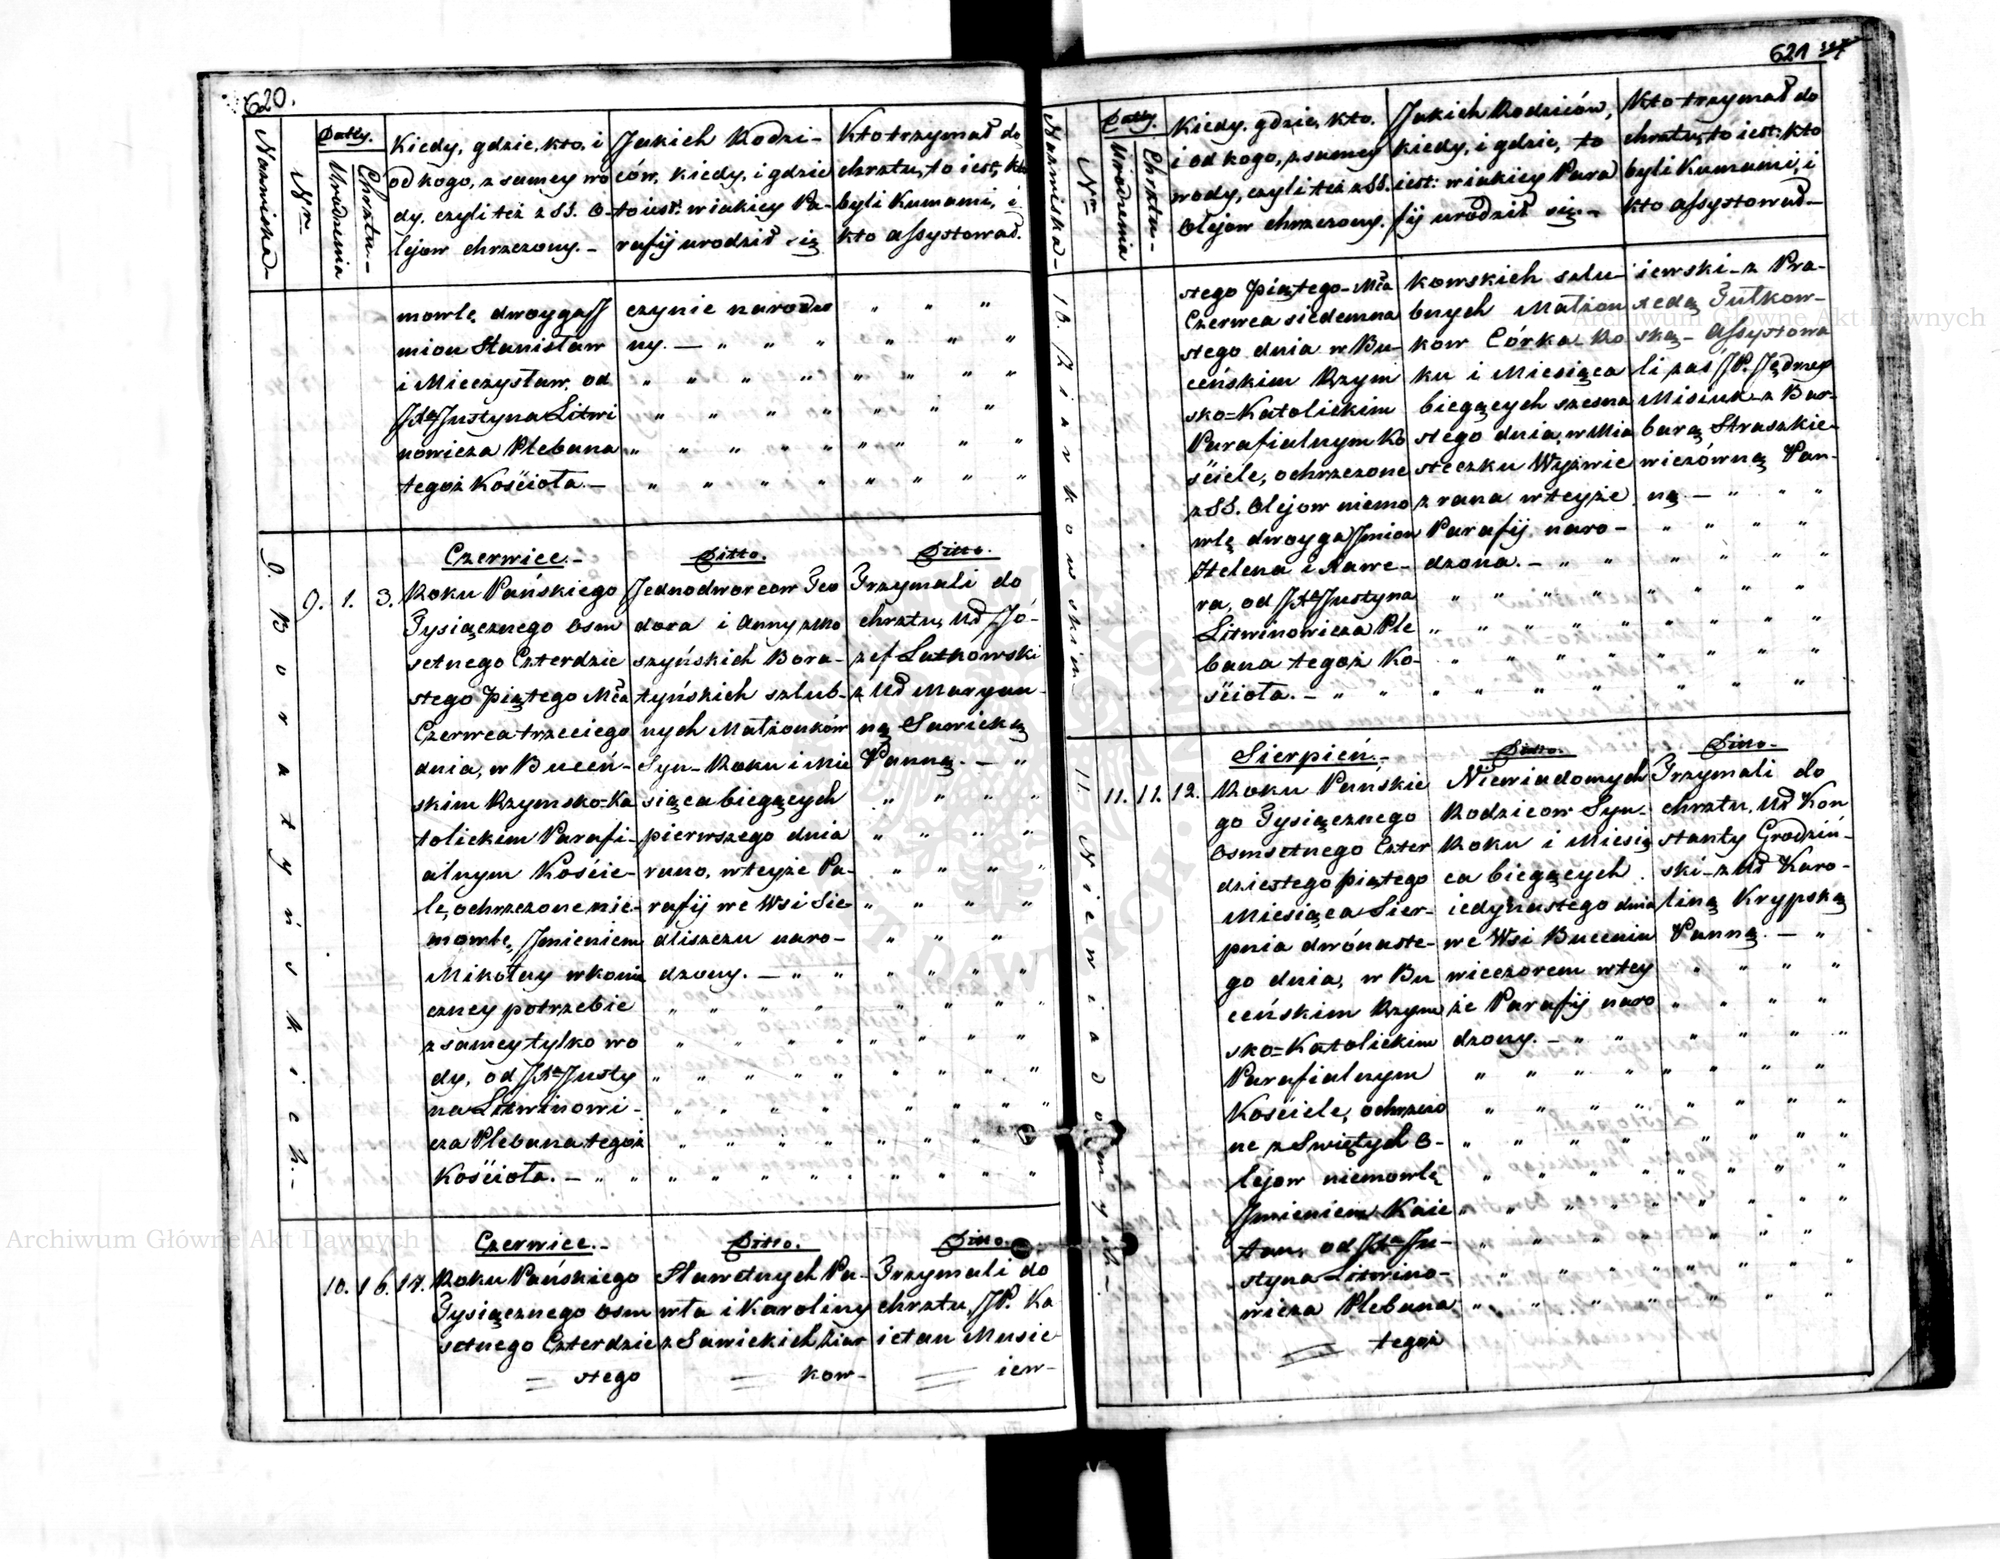 620.
Nazwiska
Nro
Datty.
Urodzenia
Chrztu.
Kiedy, gdzie, kto, i
od kogo, z samey wo
dy, czyli też z SS. O-
lejow chrzczony.
Jakich Rodzi-
ców, kiedy, i gdzie
to iest: w iakiey Pa-
rafij urodził się
Kto trzymał do
chrztu, to iest, kto
byli Kumami, i
kto assystował.
mowlę dwoyga J
mion Stanisław
i Mieczysław, od
Justyna Litwi
nowicza Plebana
tegoż Kościoła.
czynie narodzo
ny.
9. Boratyńskich.
9. 1. 3.
Czerwiec.
Roku Pańskiego
Tysiącznego Osm
setnego Czterdzie
stego piątego Mca
Czerwca trzeciego
dnia, w Buceń-
skim Rzymsko=Ka
tolickim Parafi-
alnym Koście-
le, ochrzczone nie-
mowlę, Jmieniem
Mikołay w konie
czney potrzebie
z samey tylko wo
dy, od Justy
na Litwinowi-
cza Plebana tegoż
Kościoła.
Ditto.
Jednodworcow Teo
dora i Anny z Mo
szyńskich Bora-
tyńskich szlub-
nych Małżonków
Syn Roku i Mie
siąca bieżących
pierwszego dnia
rano, w teyże Pa-
rafij we Wsi Sie-
dliszczu naro-
dzony.
Ditto.
Trzymali do
chrztu, Ud Jó-
zef Lutkowski
z Ud Maryan-
ną Sawicką
Panną.
10. 16. 17.
Czerwiec.
Roku Pańskiego
Tysiącznego Osm
setnego Czterdzie
stego
Ditto.
Sławetnych Pa-
wła i Karoliny
z Sawickich Ziar
kow-
Ditto.
Trzymali do
chrztu, JP. Ka
ietan Musie
iew-
621
Nazwiska
Nro
Datty.
Urodzenia
Chrztu
Kiedy, gdzie, kto,
i od kogo, z samey
wody, czyli też z SS.
Olejow chrzczony.
Jakich Rodziców,
kiedy, i gdzie, to
iest: w iakiey Para
fij urodził się.
Kto trzymał do
chrztu, to iest: kto
byli Kumami, i
kto assystował
10. Ziarkowskich
stego piątego Mca
Czerwca siedemna
stego dnia w Bu-
ceńskim Rzym
sko=Katolickim
Parafialnym Ko
ściele, ochrzczone
z SS. Olejow niemo
wlę dwoyga Jmion
Helena i Xawe-
ra, od Justyna
Litwinowicza Ple
bana tegoż Ko-
ścioła.
kowskich szlu
bnych Małżon
kow Córka Ro
ku i Miesiąca
bieżących szesna
stego dnia, w Mia
steczku Wyżwie
z rana w teyże
Parafij naro-
dzona.
iewski z Pra-
xedą Tutkow-
ską Assystowa
li zaś JP. Jędrzey
Misiuk z Bar-
barą Straszkie-
wiczówną Pan-
ną
11. Niewiadomych
11. 11. 12.
Sierpień.
Roku Pańskie
go Tysiącznego
Osmsetnego Czter
dziestego piątego
Miesiąca Sier-
pnia dwónaste-
go dnia, w Bu
ceńskim Rzym
sko=Katolickim
Parafialnym
Kościele, ochrzczo
ne z Swiętych O-
lejow niemowlę
Jmieniem Kaie
tan, od Ju-
styna Litwino-
wicza Plebana
tegoż
Ditto.
Niewiadomych
Rodzicow Syn
Roku i Miesią
ca bieżących
iedynastego dnia
we Wsi Buceniu
wieczorem w tey
że Parafij naro
dzony.
Ditto.
Trzymali do
chrztu, Ud Kon
stanty Grodziń-
ski z Ud Karo-
liną Krypską
Panną.
Archiwum Główne Akt Dawnych
Archiwum Główne Akt Dawnych